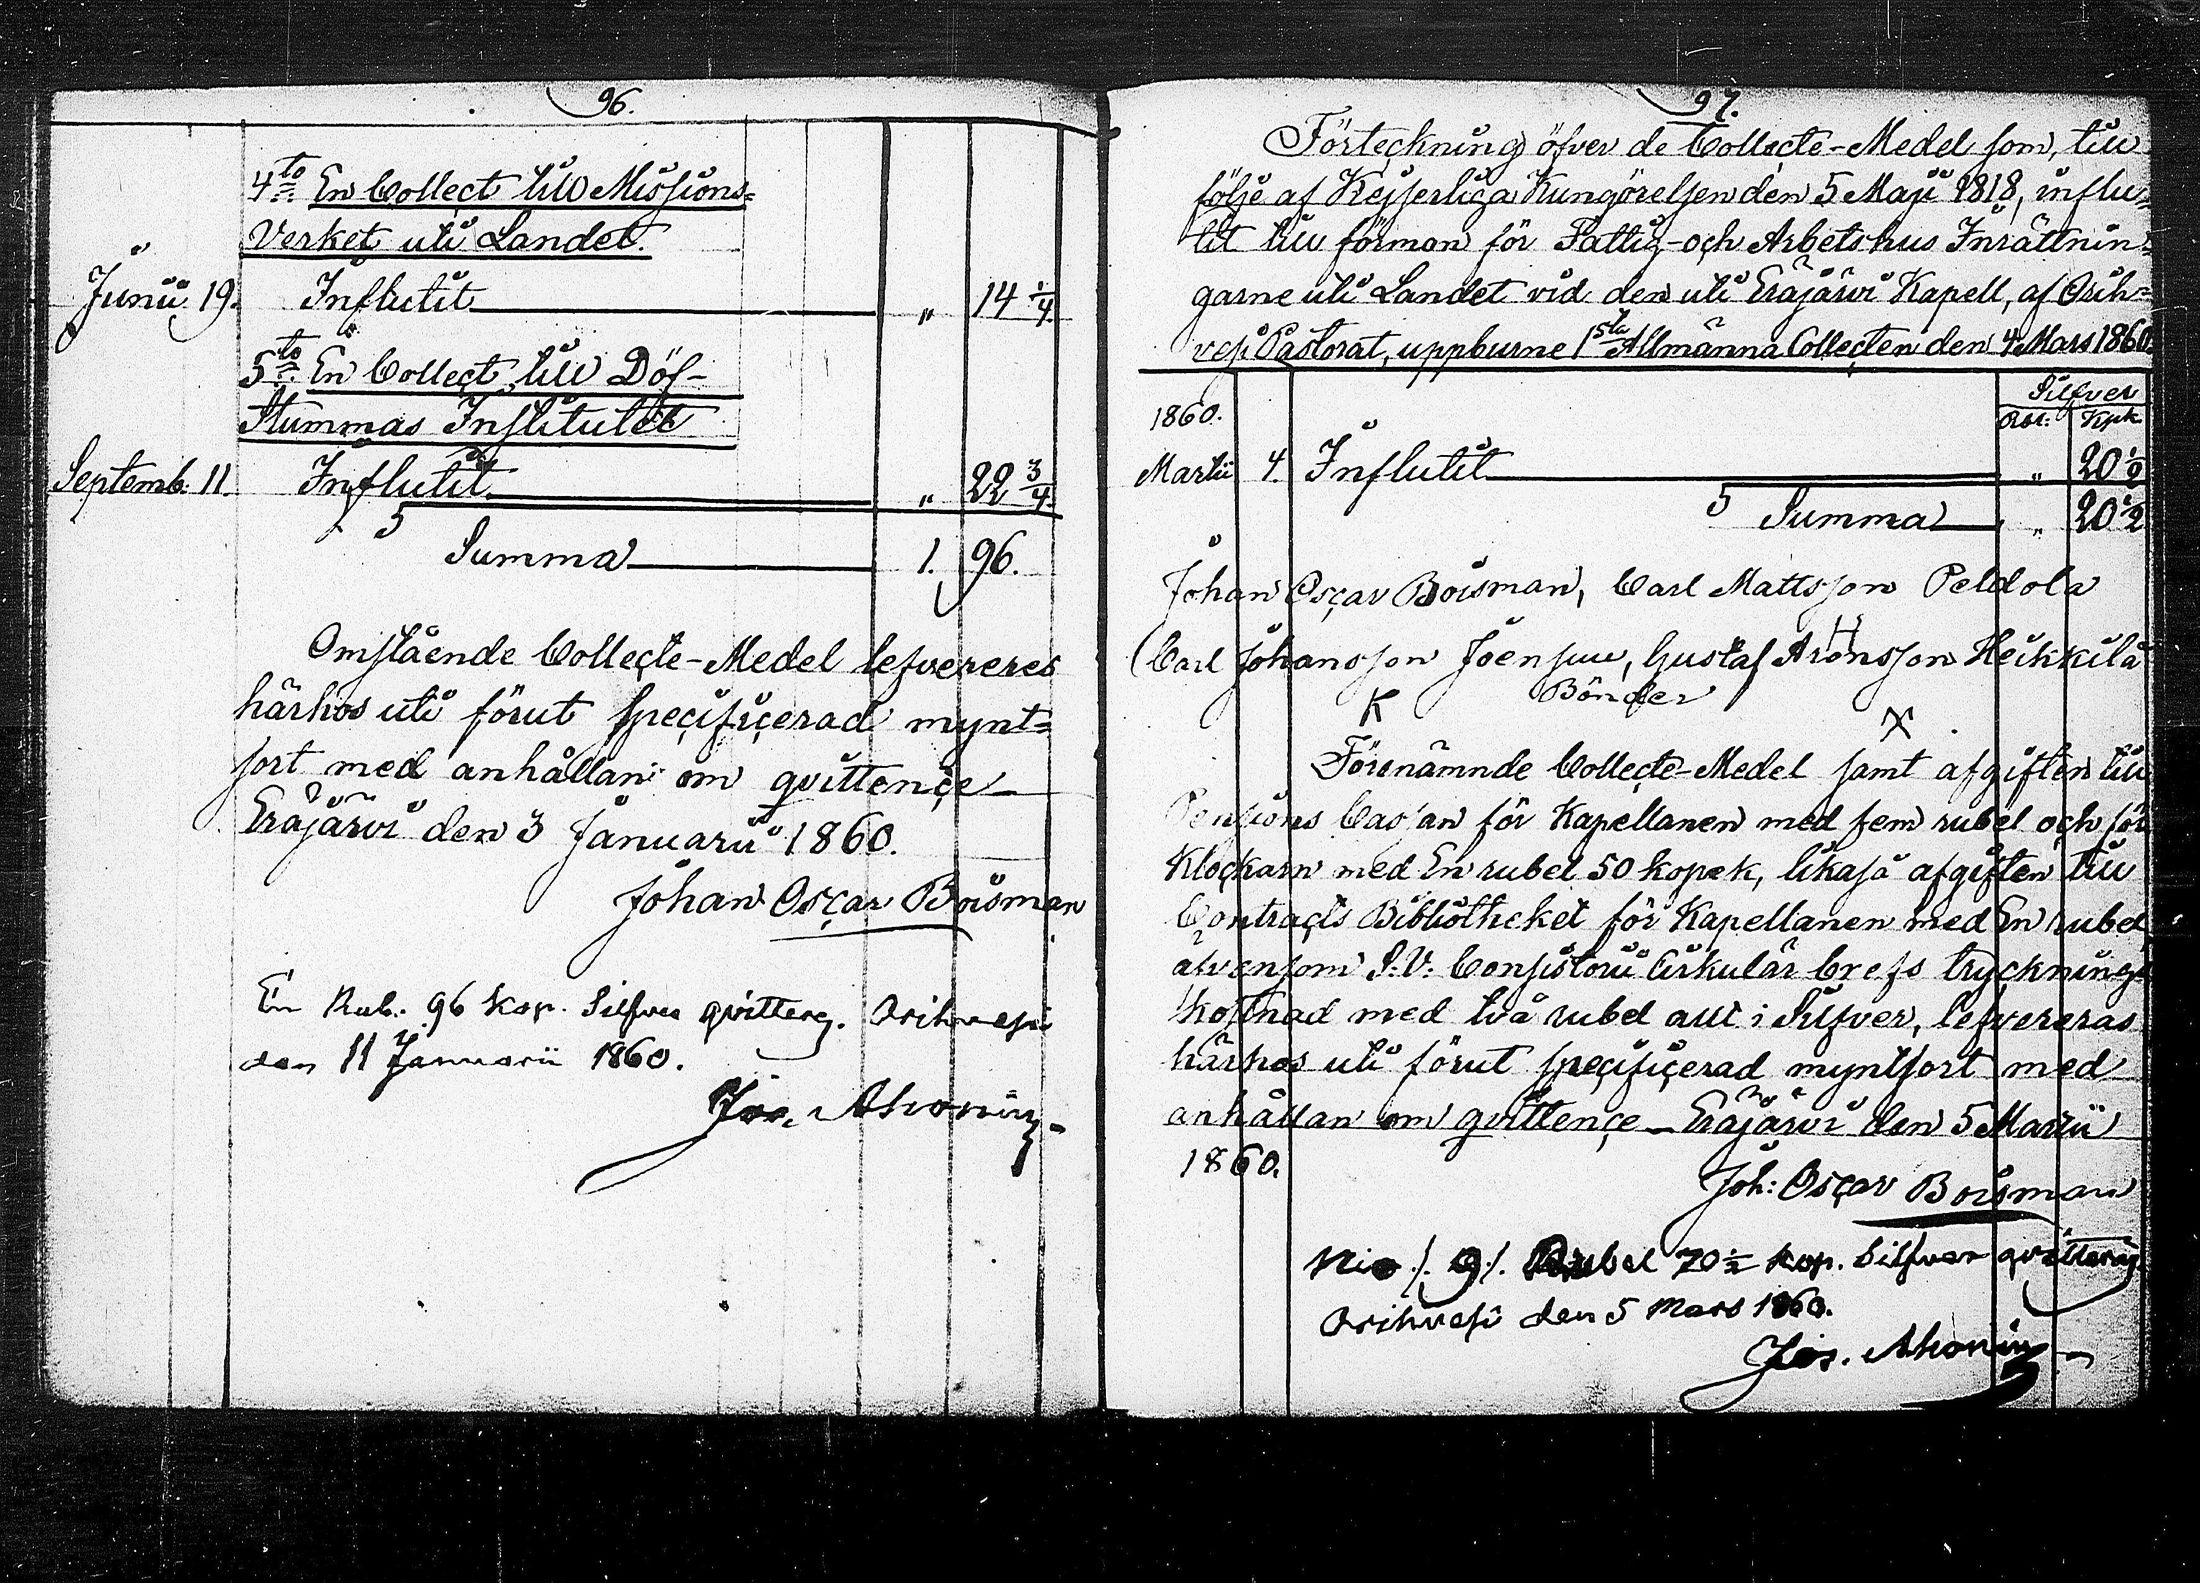 96.
4to En Collect till Missions=
Verket uti Landet.
Junii 19. Influtit „ 14 1/4.
5to En Collect till Döf-
Stummas Institutet
Septemb. 11. Influtit „ 22 3/4.
Summa 1. 96.
Omstående Collecte-Medel lefvereres
härhos uti förut specificerad mynt=
sort med anhållan om qvittence_
Eräjärvi den 3 Januarii 1860.
Johan Oscar Boisman
En Rub. 96 kop. Silfver qvitteras. Orihvesi
den 11 Januarii 1860.
Jos. Ahonius
97.
Förteckning öfver de Collecte-Medel som, till
följe af Kejserliga Kungörelsen den 5 Maji 1818, influ=
tit till förmon för Fattig- och Arbetshus Inrättnin=
garne uti Landet vid den uti Eräjärvi Kapell, af Orih=
vesi Pastorat, uppburne 1sta Allmänna Collecten den 4 Mars 1860.
Silfver
1860. Rbl: Kpk
Martii 4. Influtit „ 20 1/2
Summa „ 20 1/2
Johan Oscar Boisman, Carl Mattsson Peldola
Carl Johansson Joensuu, Gustaf Aronsson Heikkilä
K Bönder
Förenämnde Collecte-Medel samt afgiften till
Pensions Cassan för Kapellanen med fem rubel och för
Klockarn med En rubel 50 kopek, likaså afgiften till
Contracts Bibliotheket för Kapellanen med En rubel
äfvensom S. V. Consistorii Cirkulär brefs trycknings
kostnad med två rubel allt i Silfver, lefvereras
härhos uti förut specificerad myntsort med
anhållan om qvittence_ Eräjärvi den 5 Martii
1860.
Joh: Oscar Boisman
Nio /. 9 /. Rubel 70 1/2 kop. Silfver qvitteras
Orihvesi den 5 Mars 1860.
Jos. Ahonius